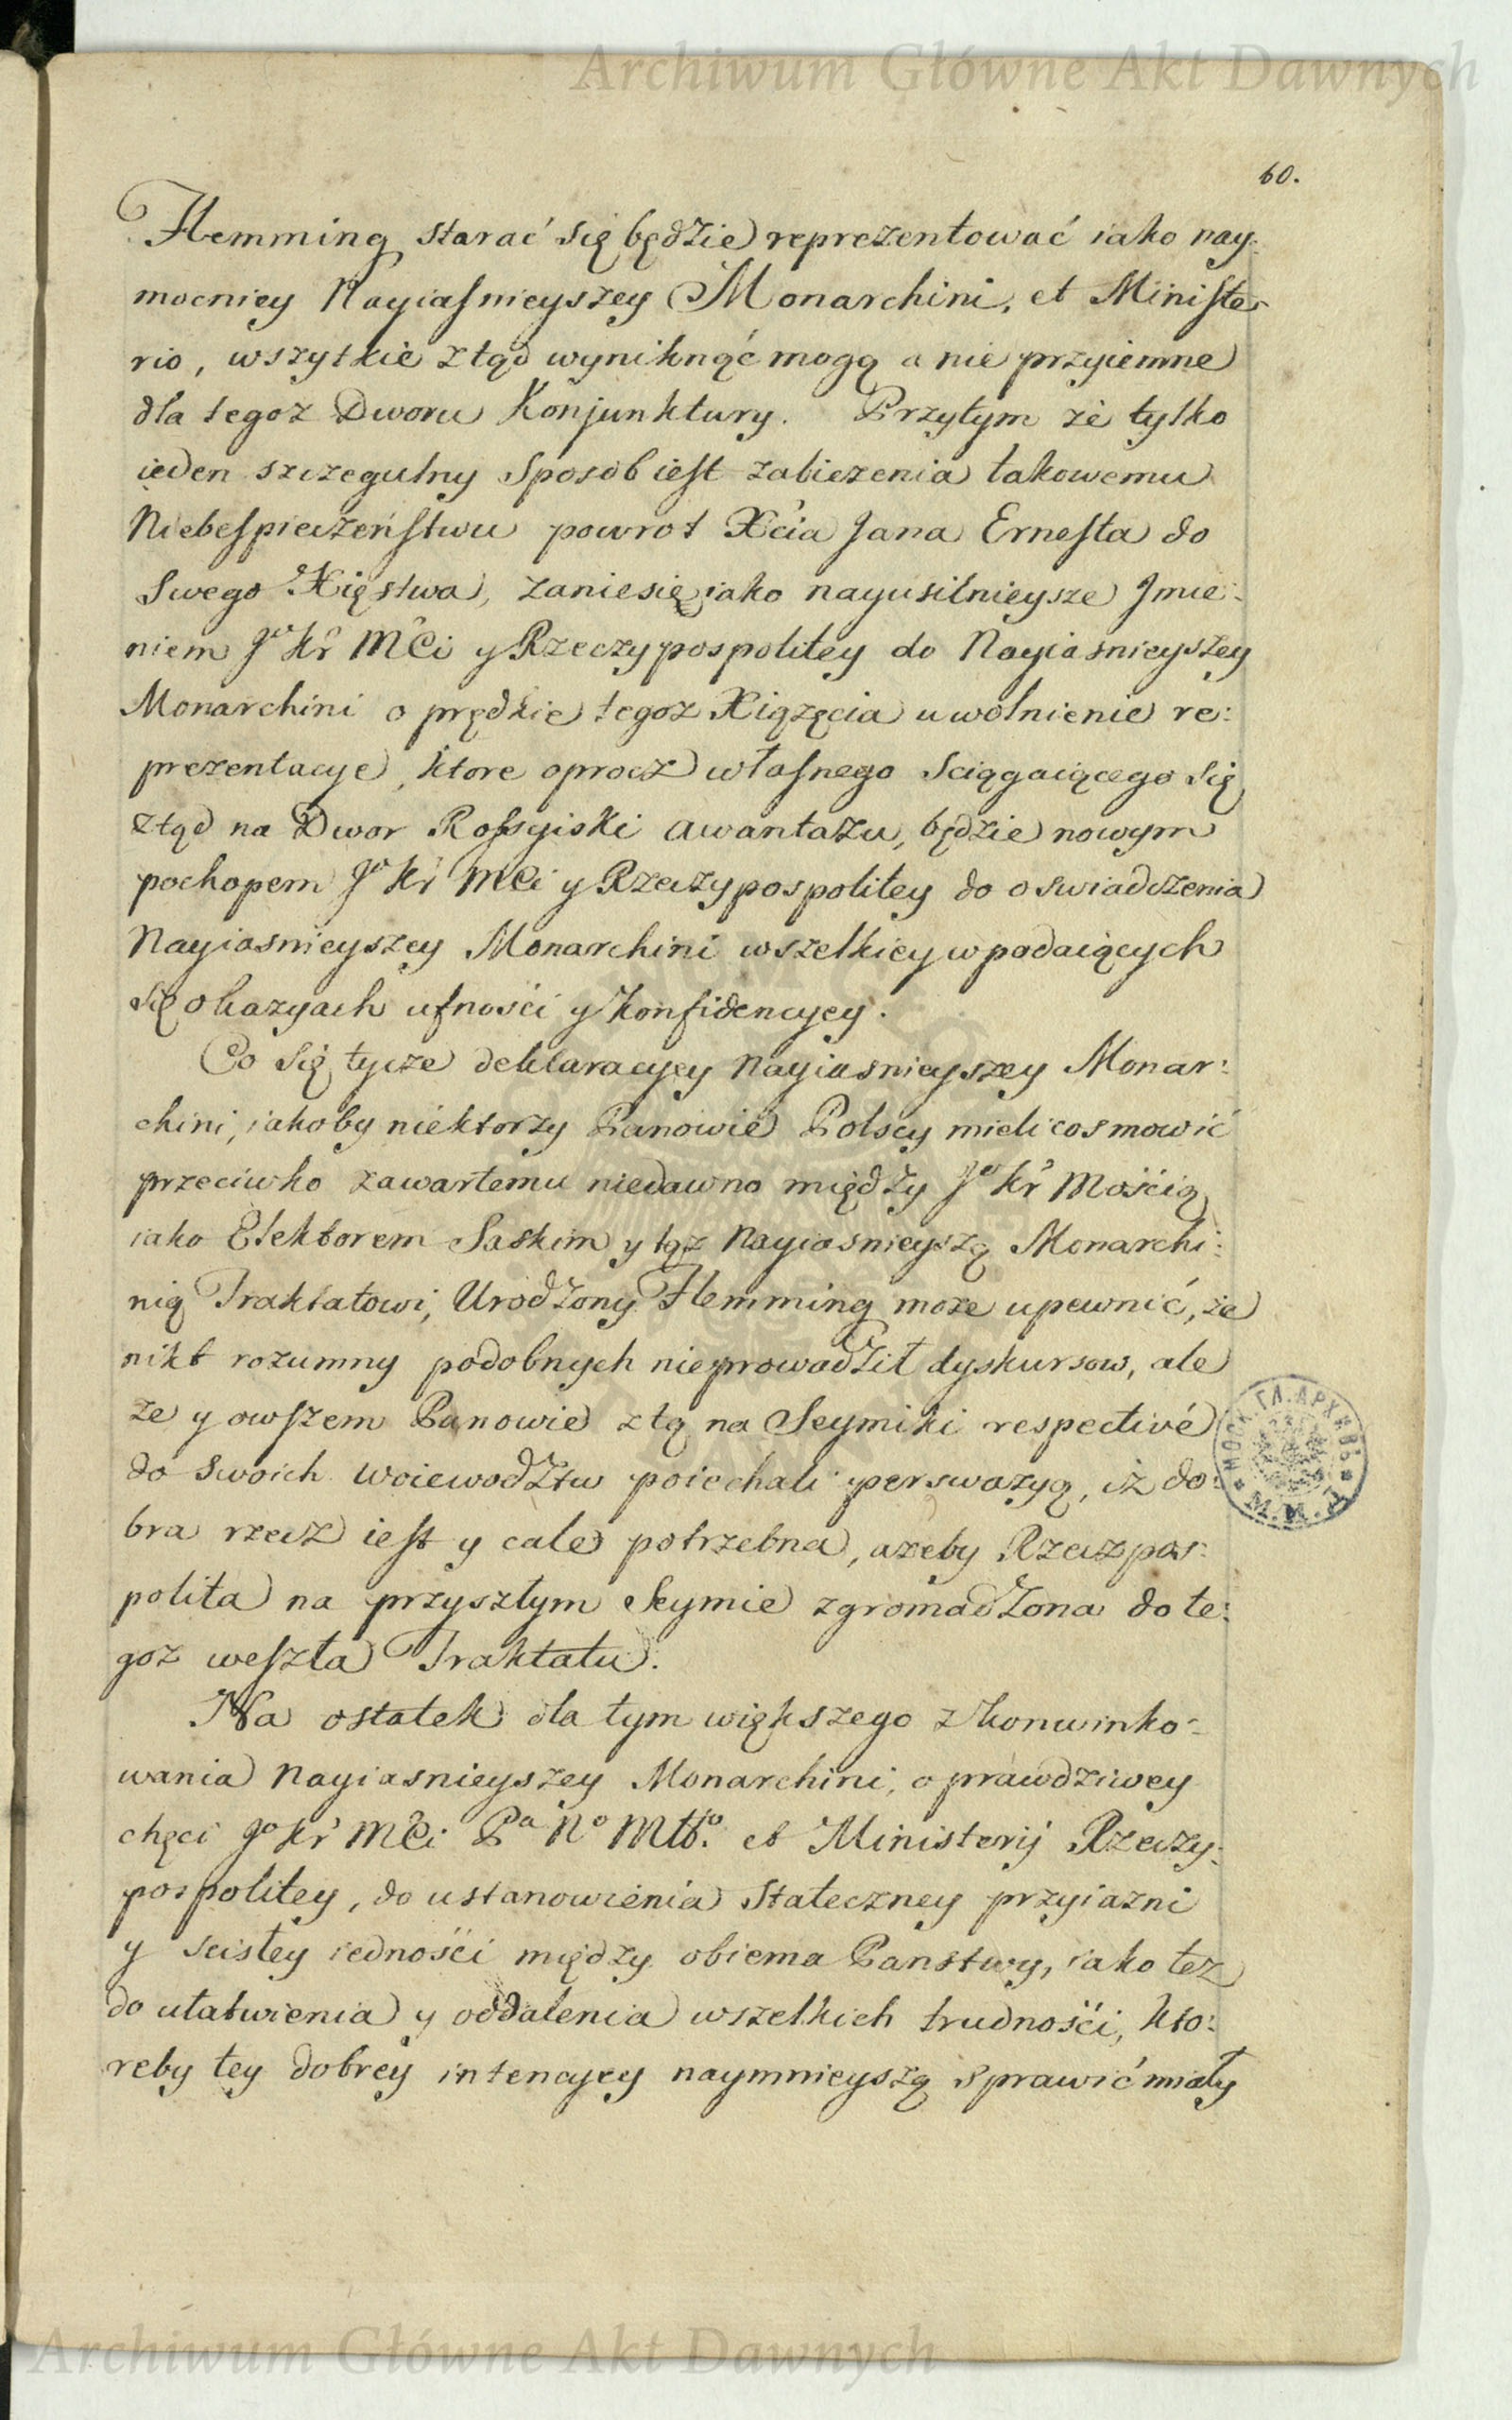 Archiwum Główne Akt Dawnych
60.
Flemming starać się będzie reprezentować iako nay:
mocniey Nayiaſnieyszey Monarchini, et Miniſte,
rio, wszytkie ztąd wyniknąć mogą a nie przyiemne
dla tegoz Dworu Konjunktury. Przytym że tylko
ieden szczegulny Sposob ieſt zabiezenia takowemu
Niebeſpieczeńſtwu powrot Xcia Jana Erneſta do
Swego Xięstwa, zaniesię iako nayusilnieysze Jmie:
niem Jo Kr Mći y Rzeczypospolitey do Nayiasnieyszey
Monarchini o prędkie tegoz Xiązęcia uwolnienie re:
prezentacye, ktore oprocz właſnego Sciągaiącego się
ztąd na Dwor Roſsyiski awantazu, będzie nowym
pochopem Jo Kr Mći y Rzeczypospolitey do oswiadczenia
Nayiasnieyszey Monarchini wszelkiey w podaiących
się okazyach ufnośći y konfidencyey.
Co się tycze deklaracyey Nayiasnieyszey Monar:
chini, iakoby niektorzy Panowie Polscy mieli cos mowić
przeciwko zawartemu niedawno między Jo Kr Mośćią
iako Elektorem Saskim y tąz Nayiasnieyszą Monarchi:
nią Traktatowi, Urodzony Flemming moze upewnić, że
nikt rozumny podobnych nieprowadził dyskursow, ale
ze y owſzem Panowie z tą na Seymiki respectivé
do swoich Woiewodztw poiechali perswazyą, iż do:
bra rzecz ieſt y cale potrzebna, ażeby Rzeczpos:
polita na przyszłym Seymie zgromadzona do te:
goz weſzła Traktatu.
Na ostatek dla tym większego zkonwinko:
wania Nayiasnieyszey Monarchini, o prawdziwey
chęci Jo Kr Mći Pa No Mttło. et Ministerij Rzeczy:
pospolitey, do ustanowienia Stateczney przyiazni
y scisłey iednośći między obiema Panstwy, iako tez
do ułatwienia y oddalenia wszelkich trudnośći, kto:
reby tey dobrey intencyey naymnieyszą sprawić miały
МОСК. ГЛ. АРХИВЪ
М.И.Д.
Archiwum Główne Akt Dawnych